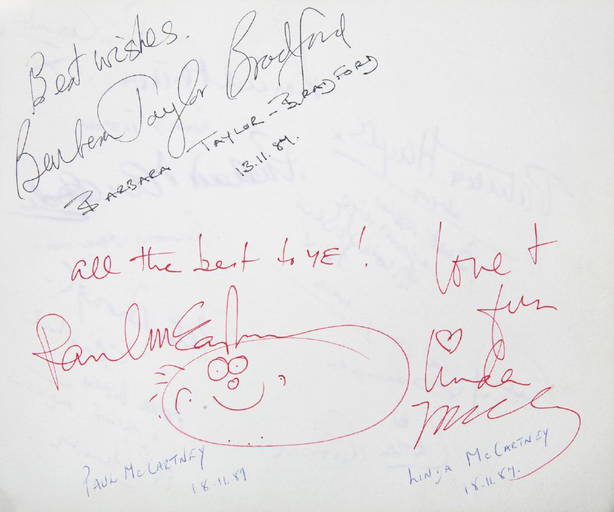 Best wishes.
Barbara Taylor Bradford
BARBARA TAYLOR-BRADFORD
13.11.87.
all the best to YE!
Love +
fun
Paul McCartney
Linda
McC
PAUL McCARTNEY
18.11.87
LINDA McCARTNEY
18.11.87.